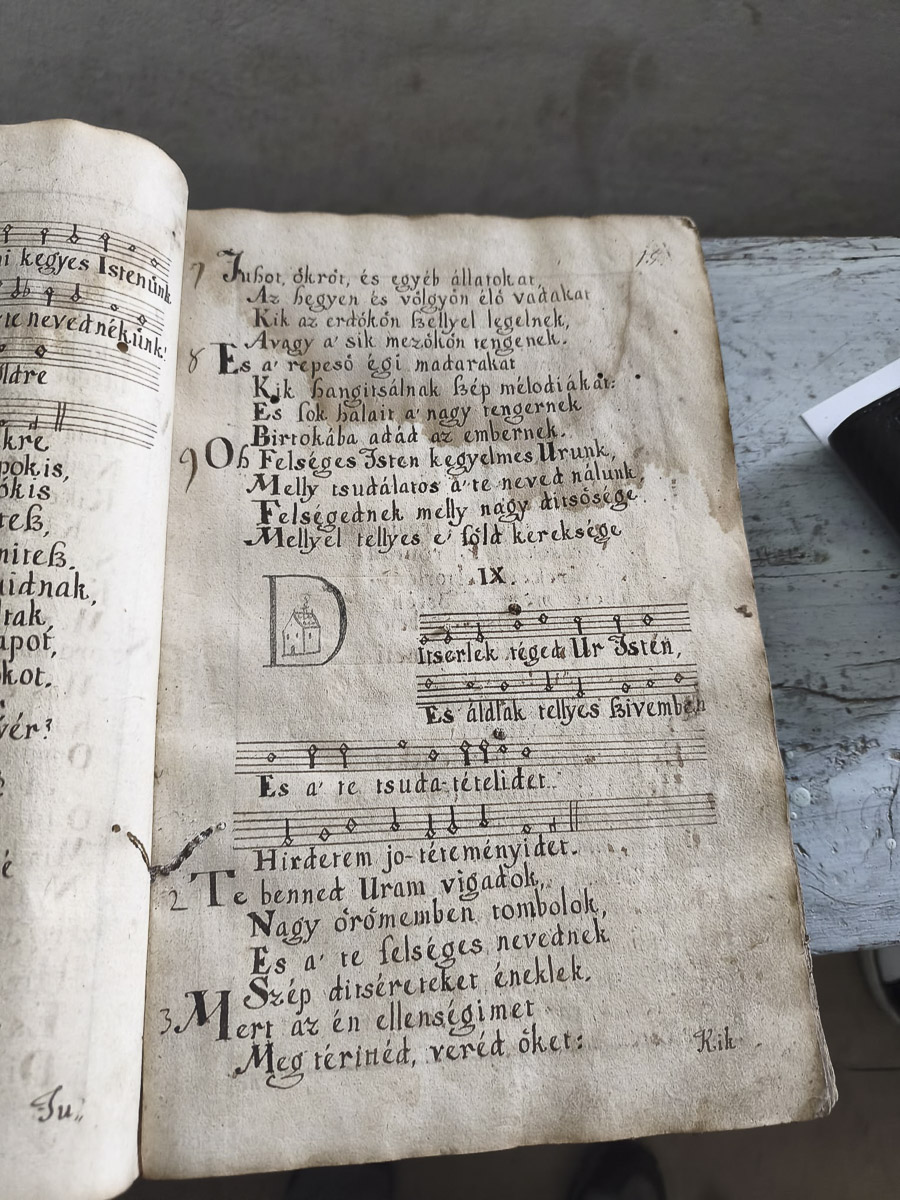 ni kegyes Istenünk
te neved nékünk!
öldre
kre
pok is,
ók is
teß,
niteß.
aidnak,
tak,
apot,
kot.
vér?
é
Ju„
15.
7 Juhot, ökröt, és egyéb állatokat,
Az hegyen és völgyön élö vadakat
Kik az erdökön ßellyel legelnek,
Avagy a' sik mezökön tengenek.
8 Es a' repesö égi madarakat
Kik hangitsálnak ßép mélodiákat:
Es sok halait a' nagy tengernek
Birtokába adád az embernek.
9 Oh Felséges Isten kegyelmes Urunk,
Melly tsudálatos a' te neved nálunk
Felségednek melly nagy ditsösége
Mellyel tellyes e' föld kereksége
IX.
Ditserlek téged Ur Isten,
Es áldlak tellyes ßivemben
Es a' te tsuda-tételidet.
Hirdetem jo-téteményidet.
2 Te benned Uram vigadok,
Nagy örömemben tombolok,
Es a' te felséges nevednek
Szép ditséreteket éneklek.
3 Mert az én ellenségimet
Meg téritéd, veréd öket:
Kik